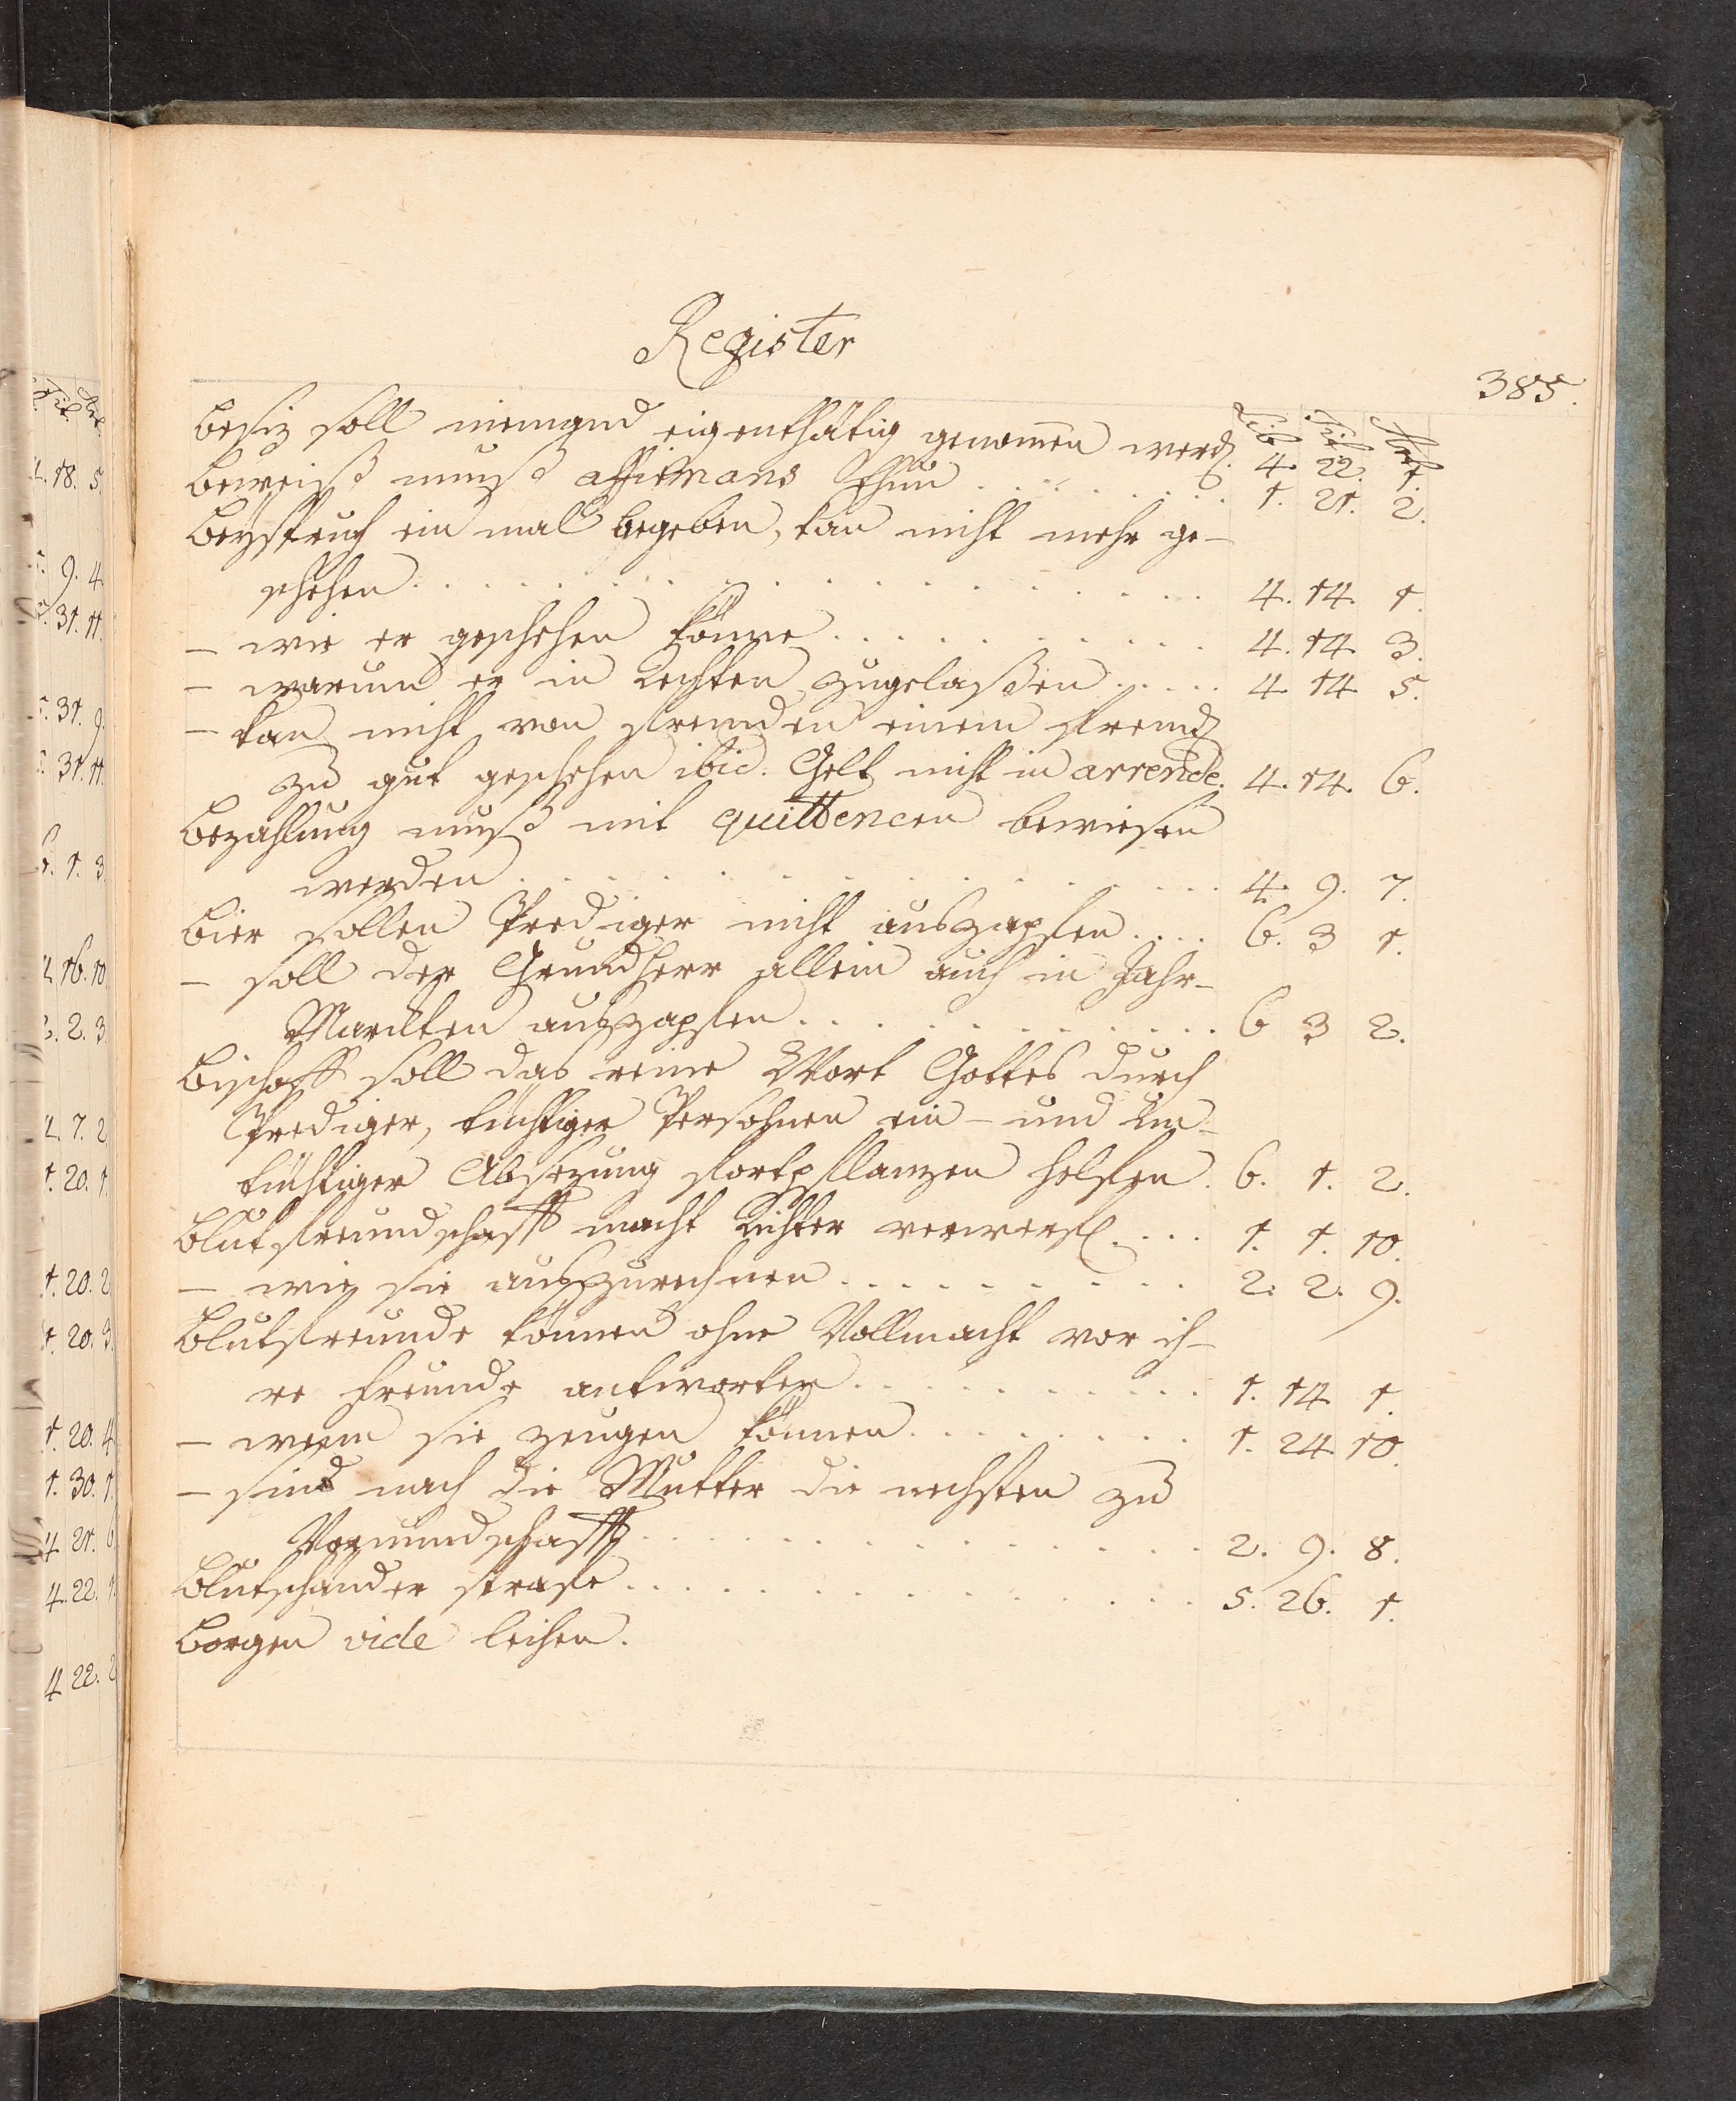 Register
385.
Lib. Tit. Art.
Besiz soll niemand eigenthätig genom̃en werd. 4. 22. 1.
Beweiß muß affirmans thun . . . . . . . 1. 21. 2.
Beyspruch ein mal begeben, kan nicht mehr ge-
schehen . . . . . . . . . . . . 4. 14. 1.
- wie er geschehen könne . . . . . . . . . 4. 14. 3.
- warum er in Rechten zugelaßen . . . . . 4. 14. 5.
- kan nicht von fremden einem fremd
zu gut geschehen ibid. Gelt nicht in arrende. 4. 14. 6.
Bezahlung muß mit quittencen bewiesen
werden . . . . . . . . . . . . 4. 9. 7.
Bier sollen Prediger nicht auszapfen . . . . 6. 3 1.
- soll der Grundherr allein auch in Jahr-
Marckten auszapfen . . . . . . . . . . 6 3 2.
Bischoff soll das reine Wort Gottes durch
Prediger, tüchtiger Persohnen ein- und un-
tüchtiger Absezung fortpflanzen helfen. 6. 1. 2.
Blutsfreundschafft macht Richter verwerfl. . . . 1. 1. 10.
- wie sie auszurechnen . . . . . . . . . 2. 2. 9.
Blutsfreunde können ohne Vollmacht vor ih-
re Freunde antworten . . . . . . . . . 1. 14 1.
- wenn sie zeugen können . . . . . . . . 1. 24 10.
- sind nach die Mutter die nechsten zu
Vormundschafft . . . . . . . . . . . . 2. 9. 8.
Blutschänder strafe . . . . . . . . . . . . 5. 26. 1.
Borgen vide leihen.